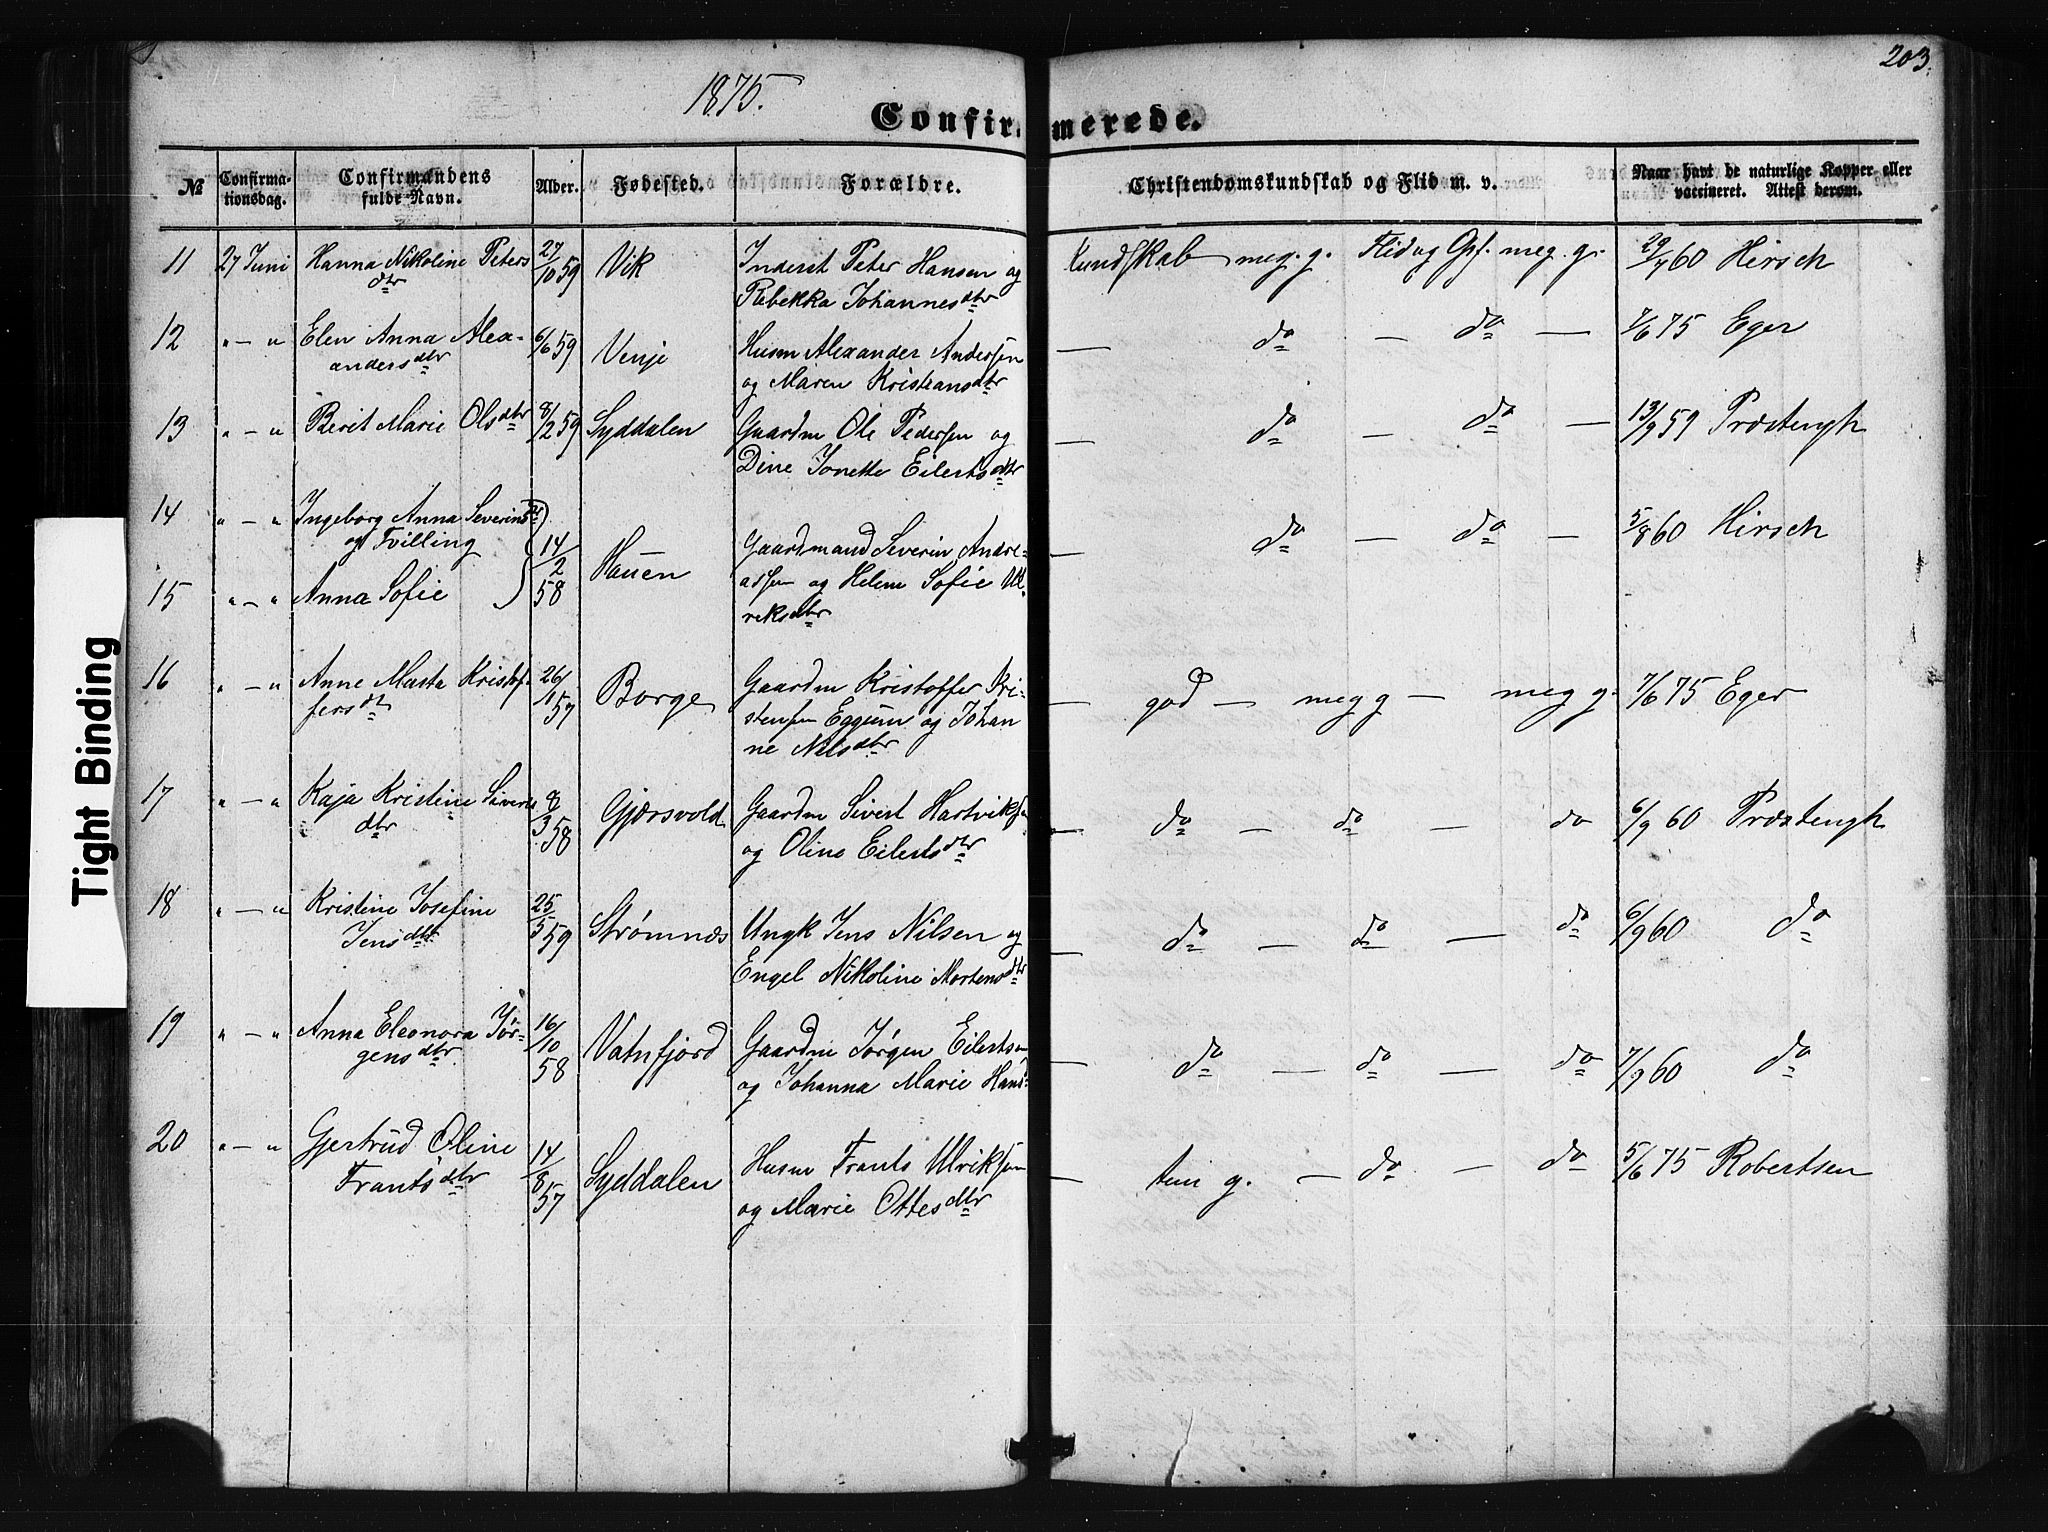 203.
1875.
Confirmerede.
№ Confirma-tionsdag. Confirmandens fulde Navn. Alder. Fødested. Forældre. Christendomskundskab og Flid m. v. Naar havt de naturlige Kopper eller vaccineret. Attest derom.
11 27 Juni Hanna Nikoline Peters 27/10 59 Vik Inderst Peter Hansen og Kundskab meg. g. Flid og Opf. meg. g. 29/7 60 Hirsch
dtr Rebekka Johannesdtr
12 " — " Elen Anna Alex- 6/6 59 Venje Husm Alexander Andersen — do — do — 7/6 75 Eger
andersdtr og Maren Kristiansdtr
13 " — " Berit Marie Olsdtr 8/2 59 Syddalen Gaardm Ole Pedersen og — do — do — 13/9 59 Præstengh
Dine Jonette Eilertsdtr
14 " — " Ingeborg Anna Severinsdtr 14/2 58 Hauen Gaardmand Severin Andre- — do — do — 5/8 60 Hirsch
og Tvilling assen og Helene Sofie Ul-
15 " — " Anna Sofie reksdtr
16 " — " Anne Marta Kristof- 26/1 57 Borge Gaardm Kristoffer Kri- — god — meg g — meg g. 7/6 75 Eger
fersdtr stensen Eggum og Johan
ne Nilsdtr
17 " — " Kaja Kristine Siverts 8/3 58 Gjærsvold Gaardm Sivert Hartviksen — do — do — do 6/9 60 Præstengh
dtr og Oline Eilertsdtr
18 " — " Kristine Josefine 25/5 59 Strømnæs Ungk Jens Nilsen og — do — do — do 6/9 60 do
Jensdtr Engel Nikoline Mortensdtr
19 " — " Anna Eleonora Jør- 16/10 58 Vatnfjord Gaardm Jørgen Eilertsen — do — do — do 7/9 60 do
gensdtr og Johanna Marie Hans-
20 " — " Gjertrud Oline 14/8 57 Syddalen Husm Frants Ulriksen — tem g. — do — do 5/6 75 Robertsen
Frantsdtr og Marie Ottesdtr
Tight Binding